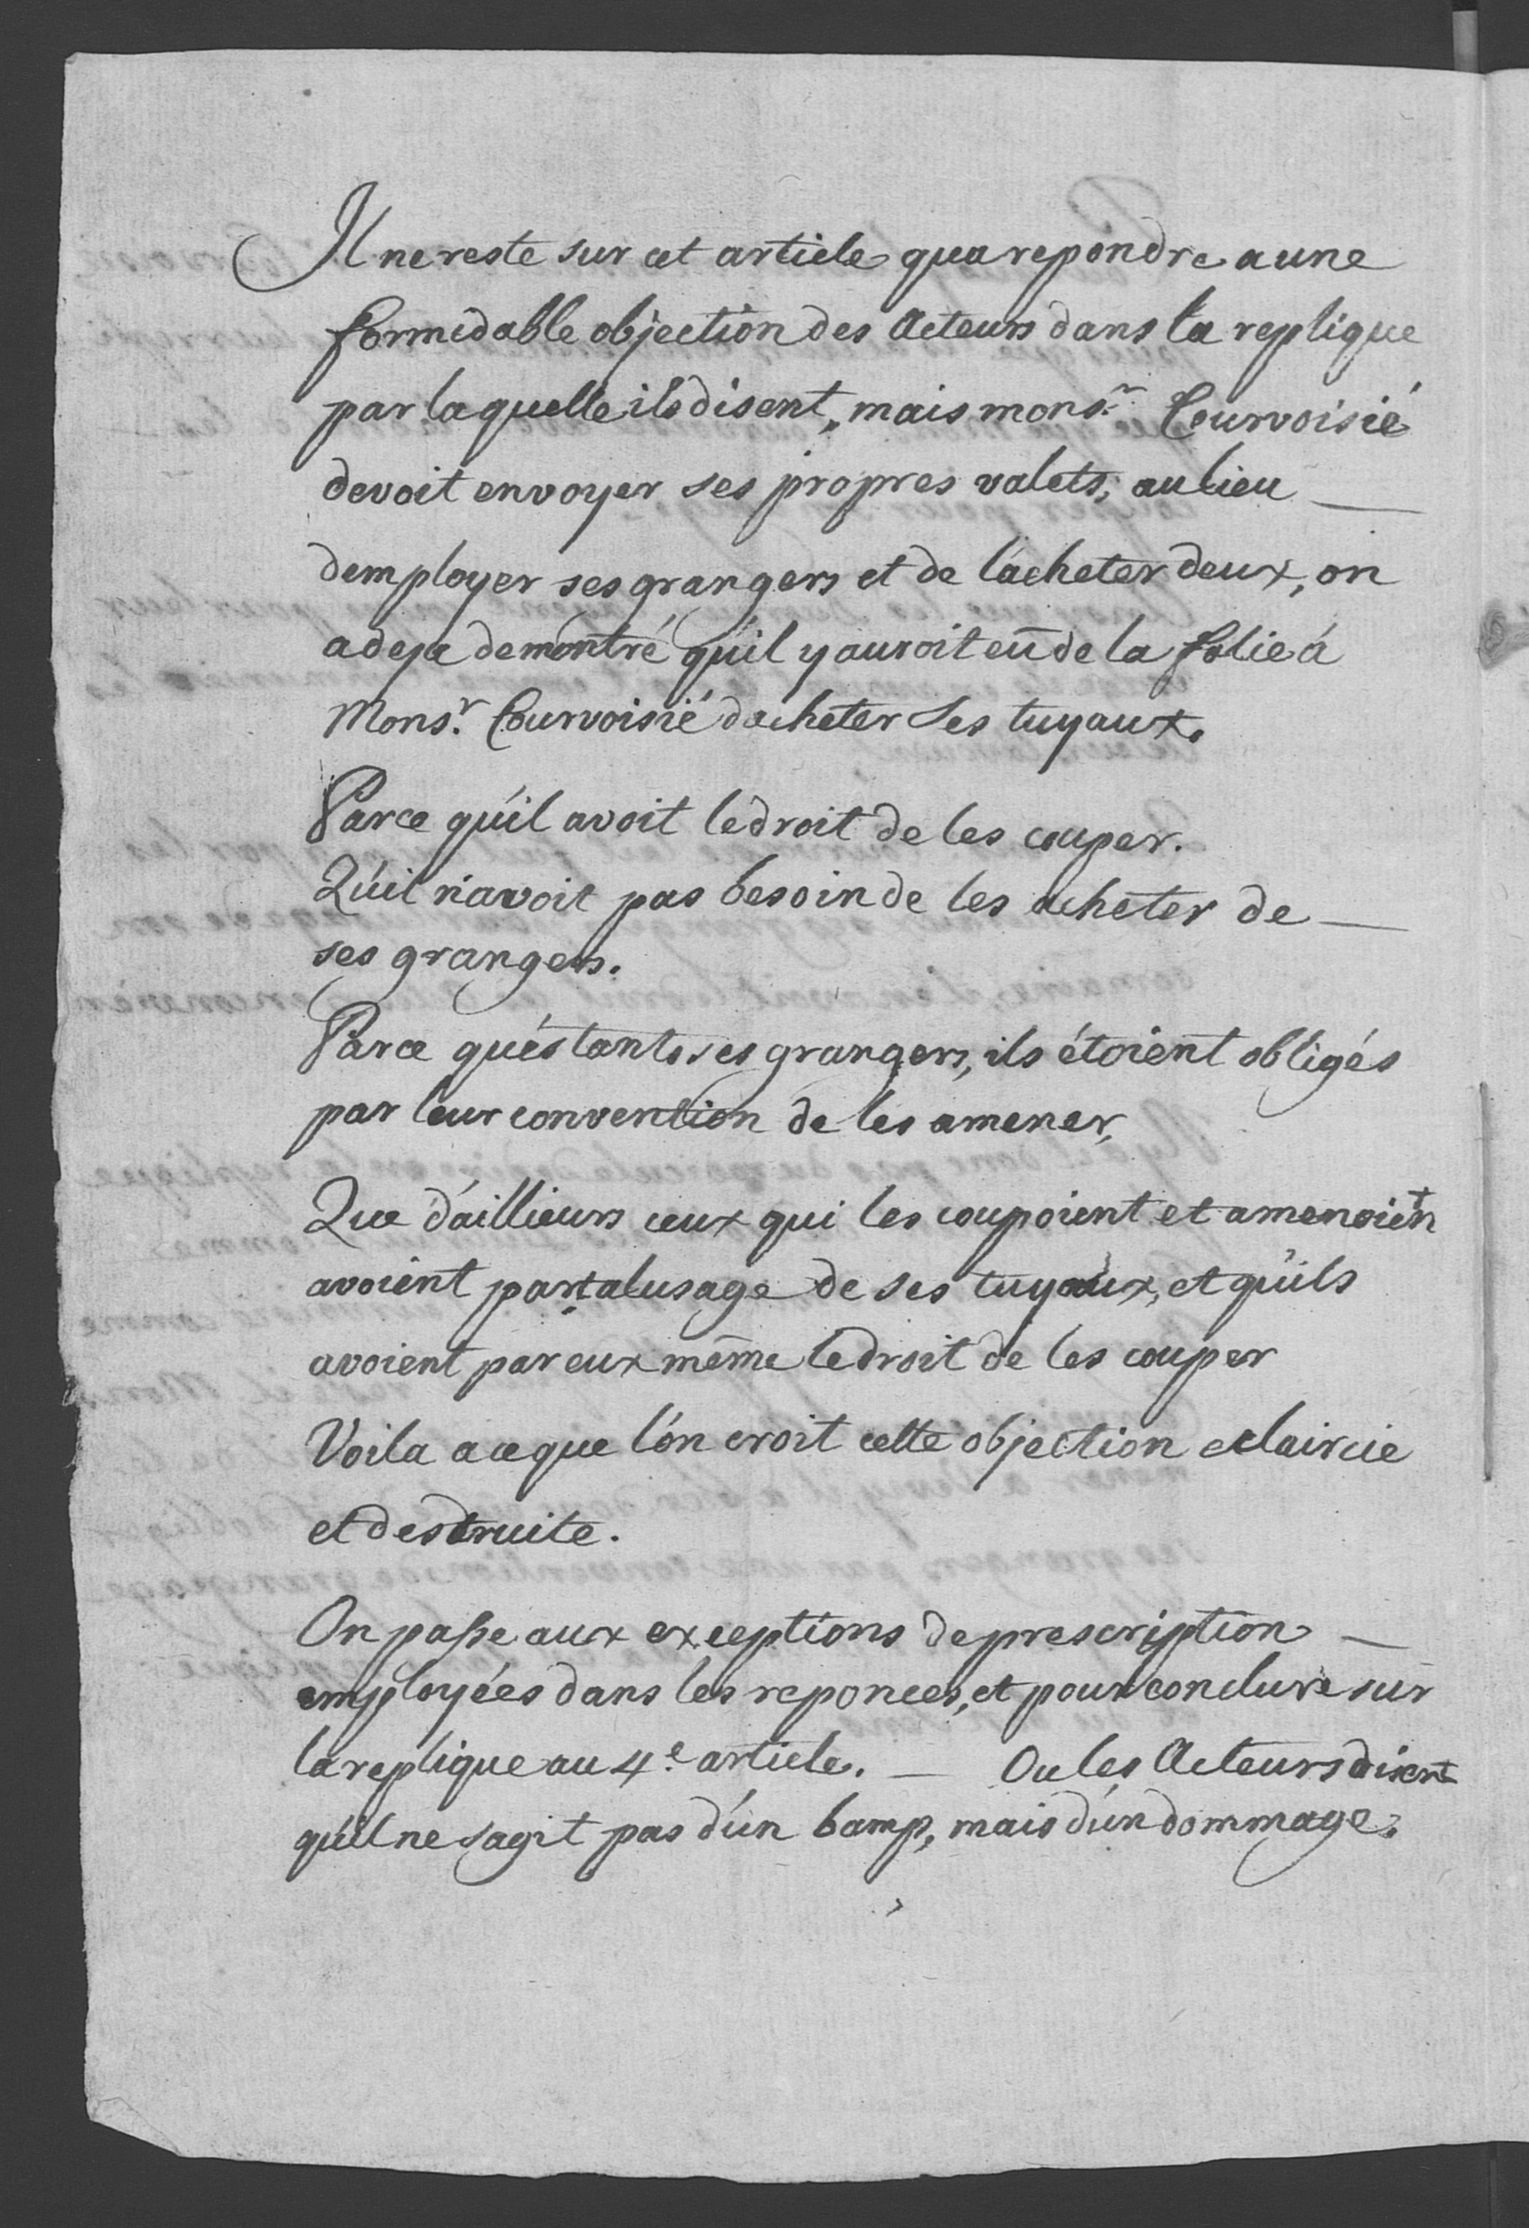 Il ne reste sur cet article qua repondre a une
formidable objection des Acteurs dans la replique
par laquelle ils disent, mais mons.r Courvoisié
devoit envoyer ses propres valets, au lieu
demployer ses grangers et de l'acheter deux, on
a deja demontré qu'il y auroit eû de la folie á
Mons.r Courvoisié dacheter ses tuyaux.
Parce qu'il avoit le droit de les couper.
Qu'il n'avoit pas besoin de les acheter de
ses grangers.
Parce qu'éstants ses grangers, ils étoient obligés
par leur convention de les amener,
Que d'aillieurs ceux qui les coupoient et amenoient
avoient part a lusage de ses tuyaux, et qu'ils
avoient par eux même le droit de les couper
Voila a ce que l'on croit cette objection eclaircie
et destruite.
On passe aux exceptions de prescription
employées dans les reponces, et pour conclure sur
la replique au 4.e article. — Ou les Acteurs disent
qu'il ne sagit pas d'un bamp, mais d'un dommage.